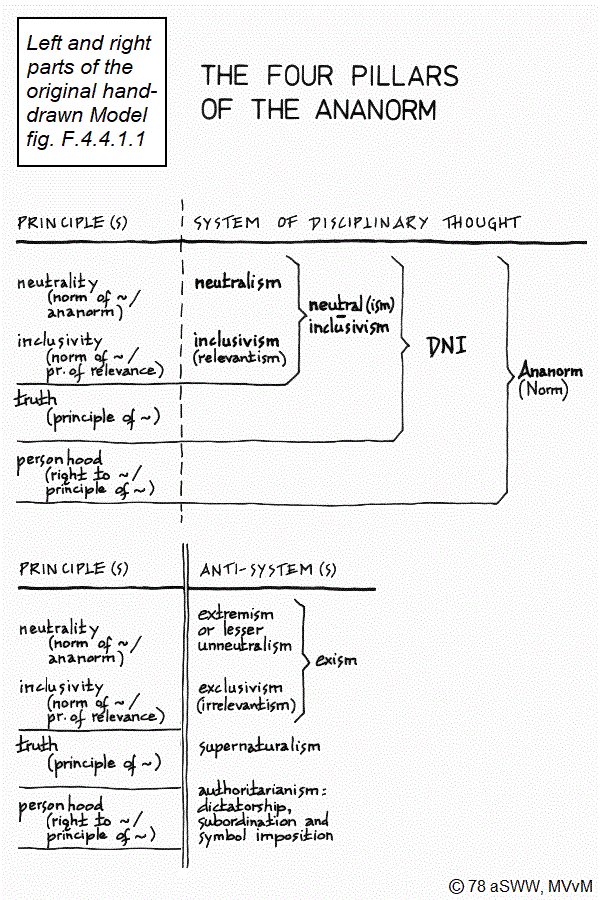 Left and right
parts of the
original hand-
drawn Model
fig. F.4.4.1.1
THE FOUR PILLARS
OF THE ANANORM
PRINCIPLE(S)
SYSTEM OF DISCIPLINARY THOUGHT
neutrality
(norm of ~/
ananorm)
neutralism
inclusivity
(norm of ~/
pr. of relevance)
inclusivism
(relevantism)
neutral(ism)
inclusivism
DNI
Ananorm
(Norm)
truth
(principle of ~)
personhood
(right to ~/
principle of ~)
PRINCIPLE(S)
ANTI-SYSTEM(S)
neutrality
(norm of ~/
ananorm)
extremism
or lesser
unneutralism
exism
inclusivity
(norm of ~/
pr. of relevance)
exclusivism
(irrelevantism)
truth
(principle of ~)
supernaturalism
personhood
(right to ~/
principle of ~)
authoritarianism:
dictatorship,
subordination and
symbol imposition
© 78 aSWW, MVvM